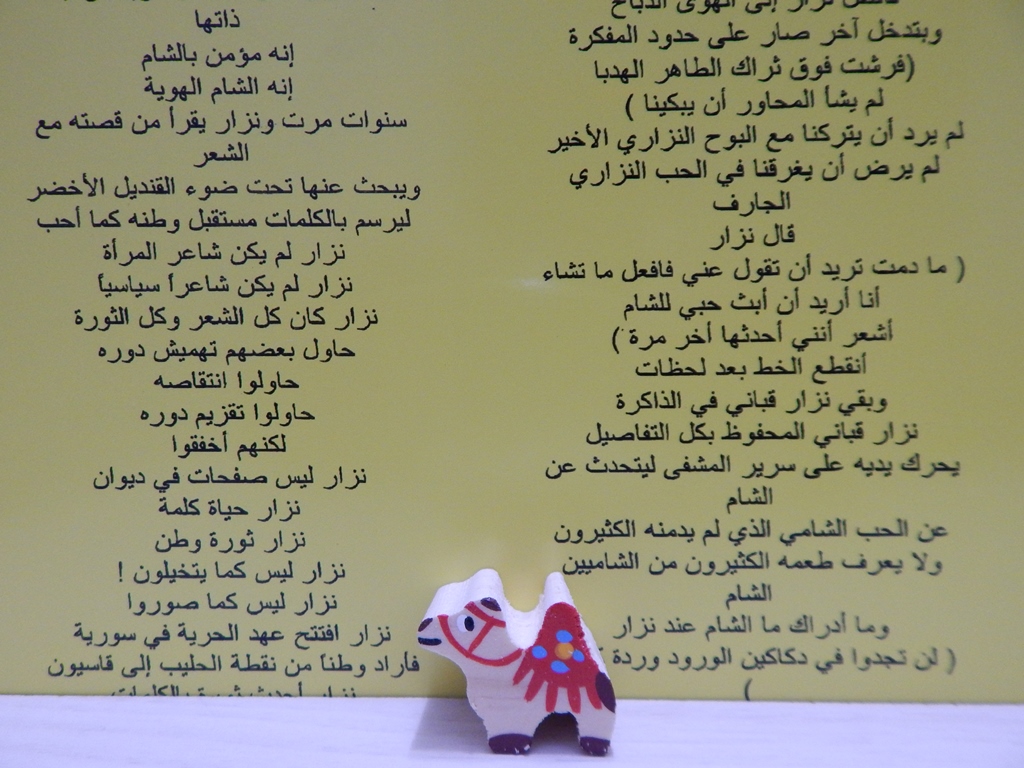 وبتدخل آخر صار على حدود المفكرة
(فرشت فوق ثراك الطاهر الهدبا
لم يشأ المحاور أن يبكينا )
لم يرد أن يتركنا مع البوح النزاري الأخير
لم يرض أن يغرقنا في الحب النزاري
الجارف
قال نزار
( ما دمت تريد أن تقول عني فافعل ما تشاء
أنا أريد أن أبث حبي للشام
أشعر أنني أحدثها أخر مرة )
أنقطع الخط بعد لحظات
وبقي نزار قباني في الذاكرة
نزار قباني المحفوظ بكل التفاصيل
يحرك يديه على سرير المشفى ليتحدث عن
الشام
عن الحب الشامي الذي لم يدمنه الكثيرون
ولا يعرف طعمه الكثيرون من الشاميين
الشام
وما أدراك ما الشام عند نزار
( لن تجدوا في دكاكين الورود وردة
)
ذاتها
إنه مؤمن بالشام
إنه الشام الهوية
سنوات مرت ونزار يقرأ من قصته مع
الشعر
ويبحث عنها تحت ضوء القنديل الأخضر
ليرسم بالكلمات مستقبل وطنه كما أحب
نزار لم يكن شاعر المرأة
نزار لم يكن شاعراً سياسياً
نزار كان كل الشعر وكل الثورة
حاول بعضهم تهميش دوره
حاولوا انتقاصه
حاولوا تقزيم دوره
لكنهم أخفقوا
نزار ليس صفحات في ديوان
نزار حياة كلمة
نزار ثورة وطن
نزار ليس كما يتخيلون !
نزار ليس كما صوروا
نزار افتتح عهد الحرية في سورية
فأراد وطناً من نقطة الحليب إلى قاسيون